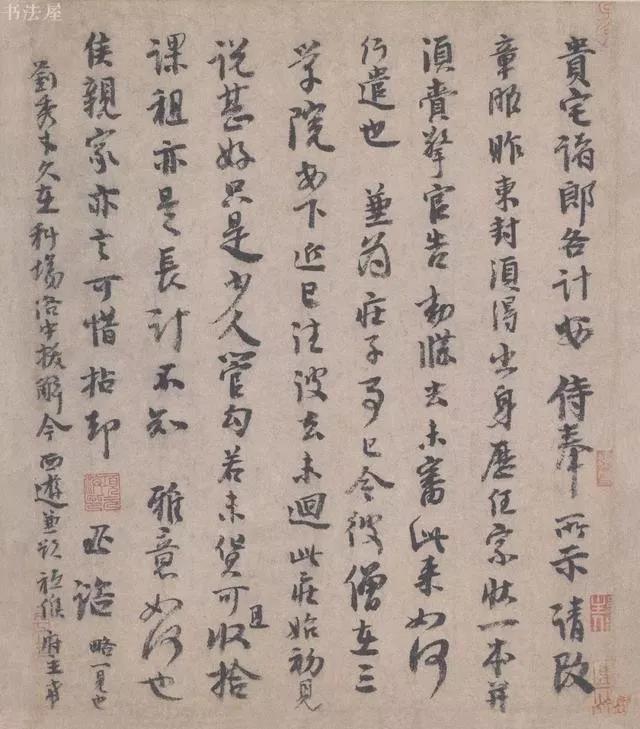 书法屋
貴宅諸郎各計安侍奉所示請改
章服昨東封須得出身歷任家狀一本并
須賫擎官告勑牒去未審此来如何
行遣也 並為庄子事已令彼僧在三
学院安下近已往彼去未迴此庄始初見
說甚好只是少人管勾若未貨可且收拾
課租亦是長計不知 雅意如何也
侯親家亦言可惜拈却 諮 略一見也
劉秀才久在科場洛中拔解今西遊兼欲祗候府主希